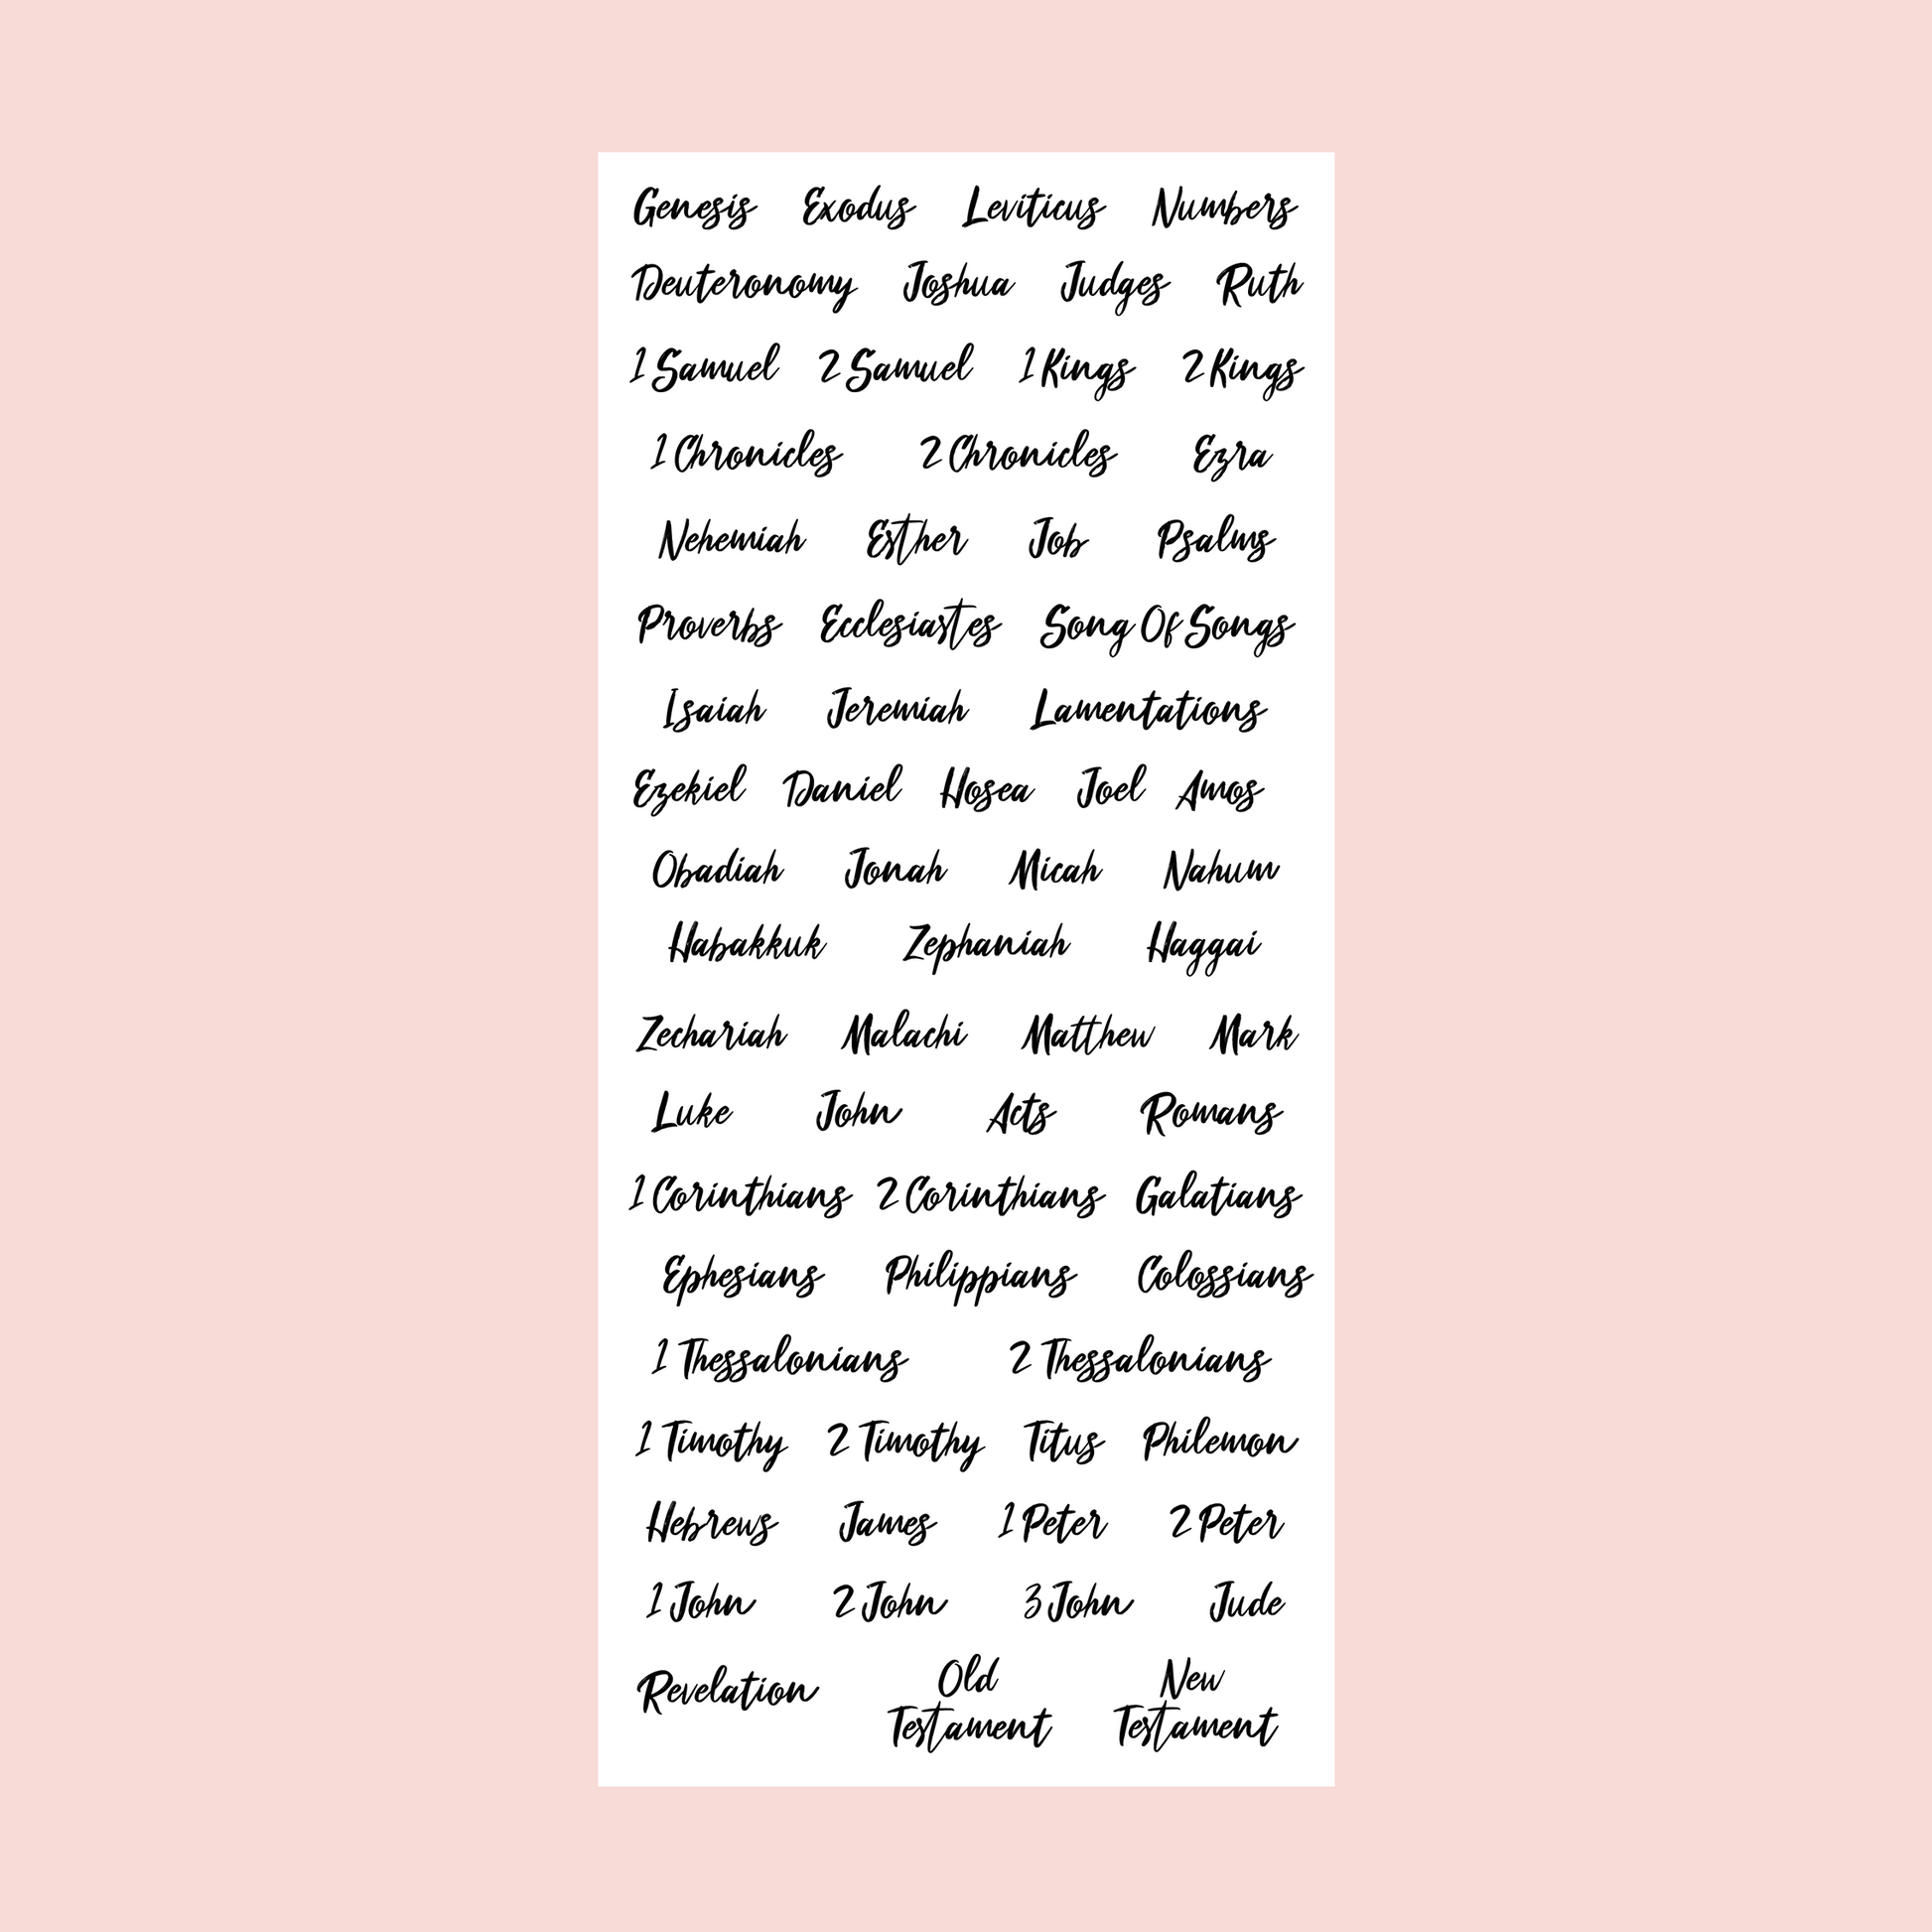 Genesis Exodus Leviticus Numbers
Deuteronomy Joshua Judges Ruth
1 Samuel 2 Samuel 1 Kings 2 Kings
1 Chronicles 2 Chronicles Ezra
Nehemiah Esther Job Psalms
Proverbs Ecclesiastes Song Of Songs
Isaiah Jeremiah Lamentations
Ezekiel Daniel Hosea Joel Amos
Obadiah Jonah Micah Nahum
Habakkuk Zephaniah Haggai
Zechariah Malachi Matthew Mark
Luke John Acts Romans
1 Corinthians 2 Corinthians Galatians
Ephesians Philippians Colossians
1 Thessalonians 2 Thessalonians
1 Timothy 2 Timothy Titus Philemon
Hebrews James 1 Peter 2 Peter
1 John 2 John 3 John Jude
Revelation
Old
Testament
New
Testament